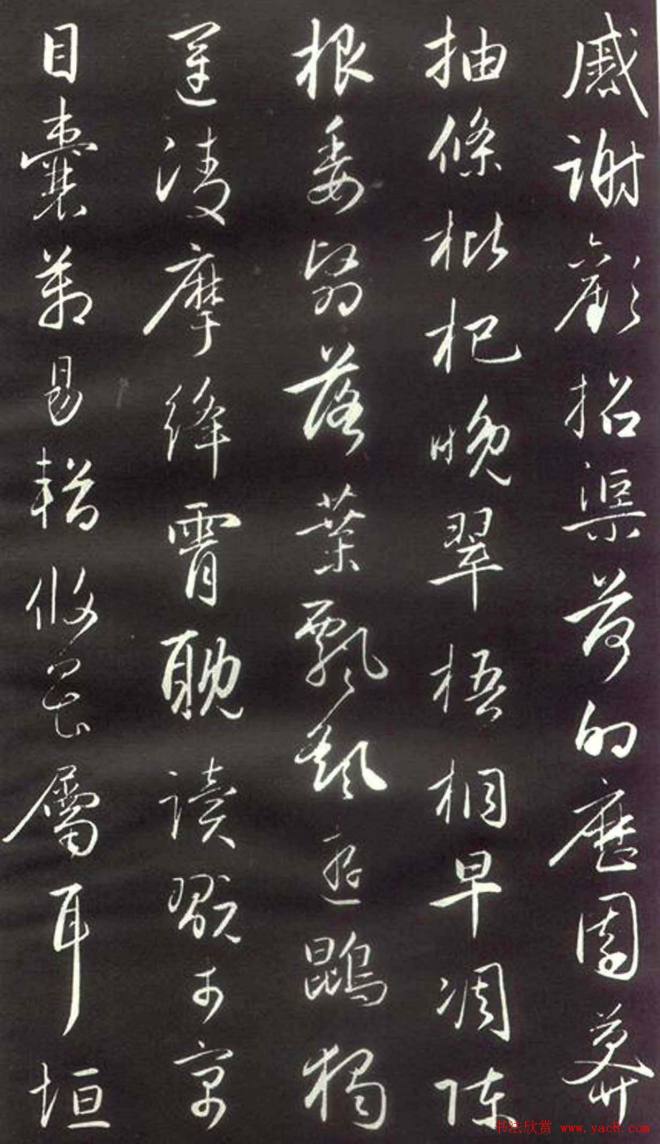 慼謝歡招渠荷的歷園莽
抽條枇杷晚翠梧桐早凋陳
根委翳落葉飄颻遊鵾獨
運淩摩絳霄耽讀翫市寓
目囊箱易輶攸畏屬耳垣
书法欣赏 www.yac8.com